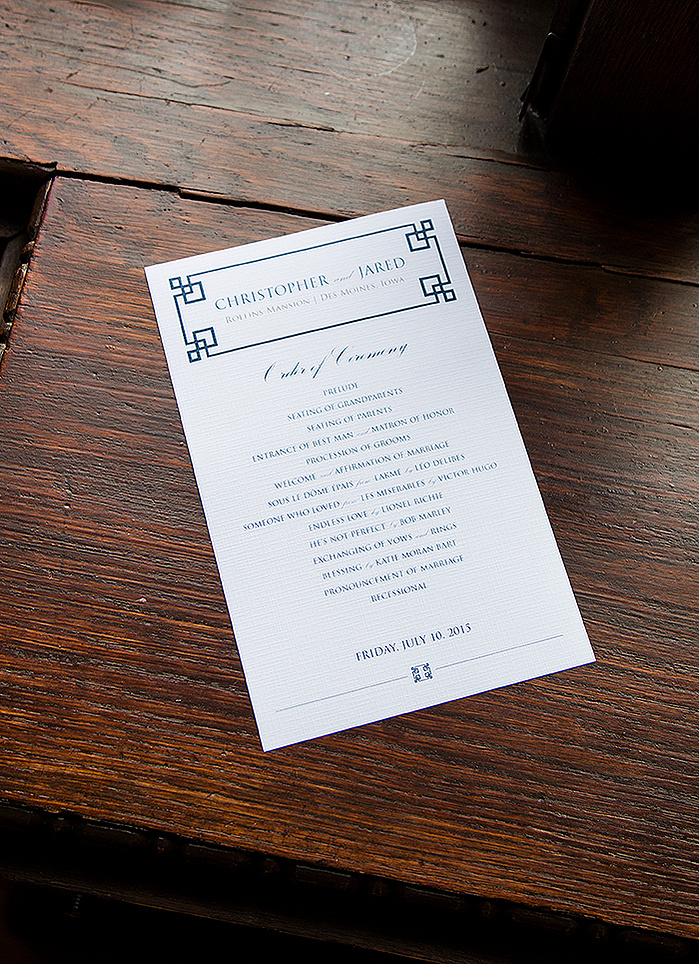 CHRISTOPHER and JARED
ROLLINS MANSION | DES MOINES, IOWA
Order of Ceremony
PRELUDE
SEATING OF GRANDPARENTS
SEATING OF PARENTS
ENTRANCE OF BEST MAN and MATRON OF HONOR
PROCESSION OF GROOMS
WELCOME and AFFIRMATION OF MARRIAGE
SOUS LE DÔME ÉPAIS from LAKMÉ by LÉO DELIBES
SOMEONE WHO LOVED from LES MISERABLES by VICTOR HUGO
ENDLESS LOVE by LIONEL RICHIE
HE'S NOT PERFECT by BOB MARLEY
EXCHANGING OF VOWS and RINGS
BLESSING by KATIE MORAN BART
PRONOUNCEMENT OF MARRIAGE
RECESSIONAL
FRIDAY, JULY 10, 2015